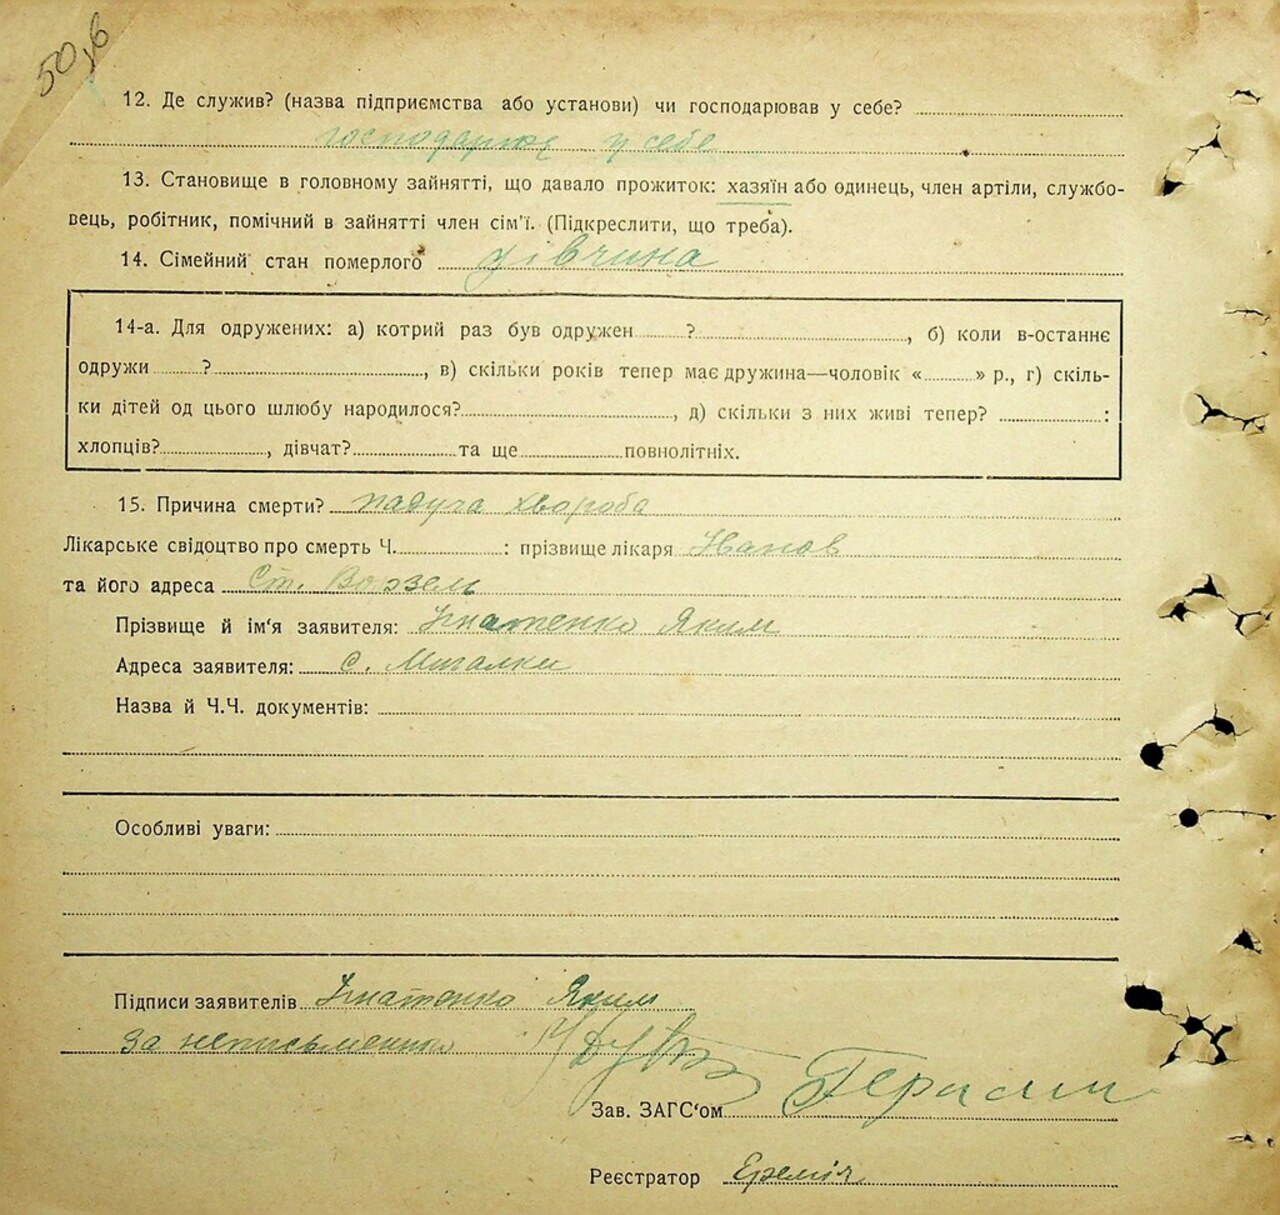 50, б
12. Де служив? (назва підприємства або установи) чи господарював у себе?
господарює у себе
13. Становище в головному зайнятті, що давало прожиток: хазяїн або одинець, член артіли, службо-
вець, робітник, помічний в зайнятті член сім'ї. (Підкреслити, що треба).
14. Сімейний стан померлого дівчина
14-а. Для одружених: а) котрий раз був одружен ? , б) коли в-останнє
одружи ? , в) скільки років тепер має дружина—чоловік « » р., г) скіль-
ки дітей од цього шлюбу народилося? , д) скільки з них живі тепер? :
хлопців? , дівчат? та ще повнолітніх.
15. Причина смерти? падуча хвороба
Лікарське свідоцтво про смерть Ч. : прізвище лікаря Иванов
та його адреса Ст. Ворзель
Прізвище й ім'я заявителя: Ігнатенко Яким
Адреса заявителя: с. Мигалки
Назва й Ч.Ч. документів:
Особливі уваги:
Підписи заявителів Ігнатенко Яким
за неписьменного
Зав. ЗАГС'ом
Реєстратор